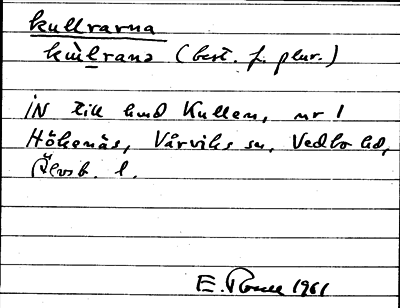 kullrarna
kùl̲rana (best. f. plur.)
iN till hmd Kullen, nr 1
Hökenäs, Vårviks sn, Vedbo hd,
Älvsb. l.
E. 1961